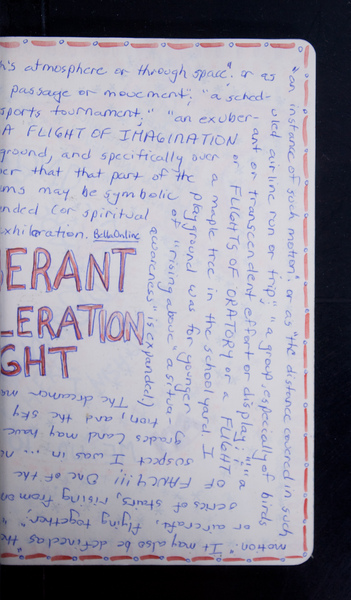 h's atmosphere or through space." or as
passage or movement; "a sched-
sports tournament;" "an exuber-
A FLIGHT OF IMAGINATION
ground, and specifically over
er that that part of the
ms may be symbolic
nded (or spiritual
xhilaration. BellaOnline
"an instance of such motion." or as "the distance covered in such
uled airline run or trip;" "a group, especially of birds
ant or transcendent effort or display;" "a
or FLIGHTS OF ORATORY or a FLIGHT
a maple tree in the school yard. I
playground was for younger
of "rising above" a situa-
awareness" is expanded)
motion." It may also be defined as "th
or aircraft, flying together;" "
series of stairs, rising from on
OF FANCY!!! One of the
suspect I was in ...
grades (and may have
tion, and the sky
The dreamer
ERANT
LERATION
GHT